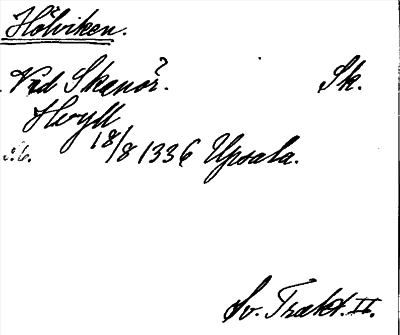 Hölviken.
Vid Skanör. Sk.
Hvyll
18/8 1336 Upsala.
Sv. Trakt. II.